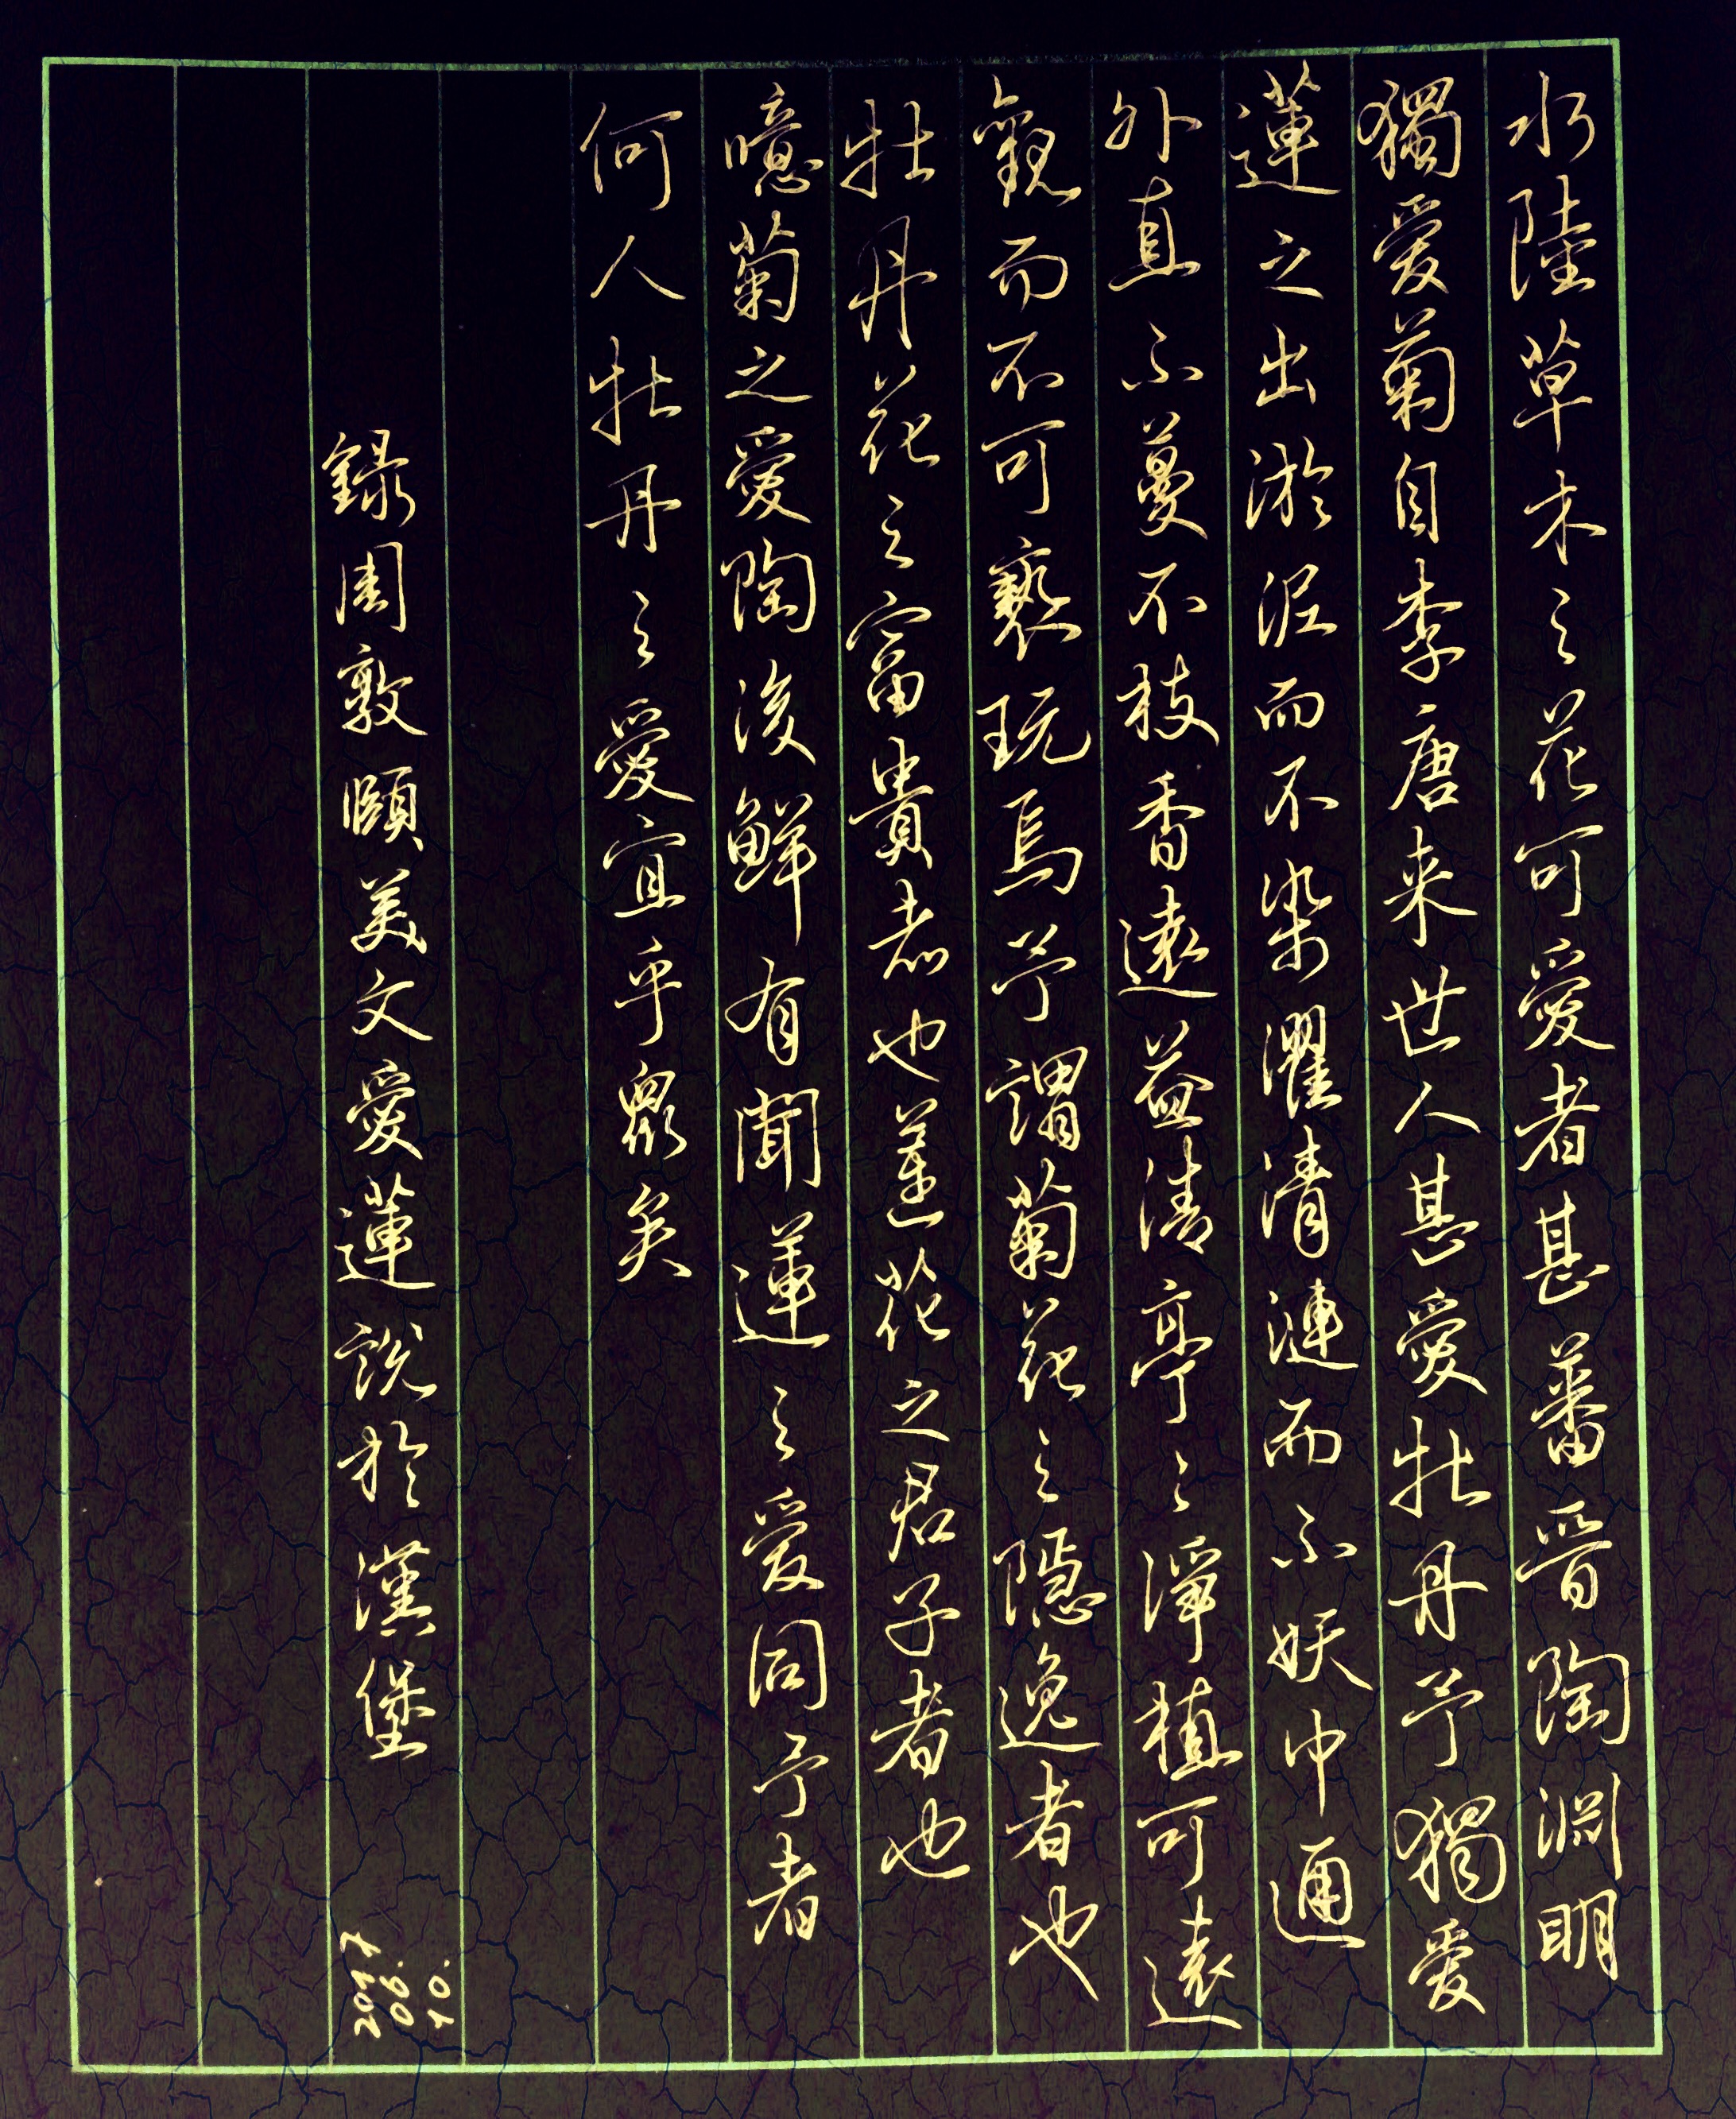 水陸草木之花可愛者甚蕃晉陶淵明
獨爱菊自李唐来世人甚愛牡丹予獨爱
蓮之出淤泥而不染濯清漣而不妖中通
外直不蔓不枝香遠益清亭々淨植可遠
觀而不可褻玩焉予謂菊花之隱逸者也
牡丹花之富貴者也蓮花之君子者也
噫菊之愛陶後鮮有聞蓮之爱同予者
何人牡丹之愛宜乎眾矣
錄周敦頤美文愛蓮說於漢堡